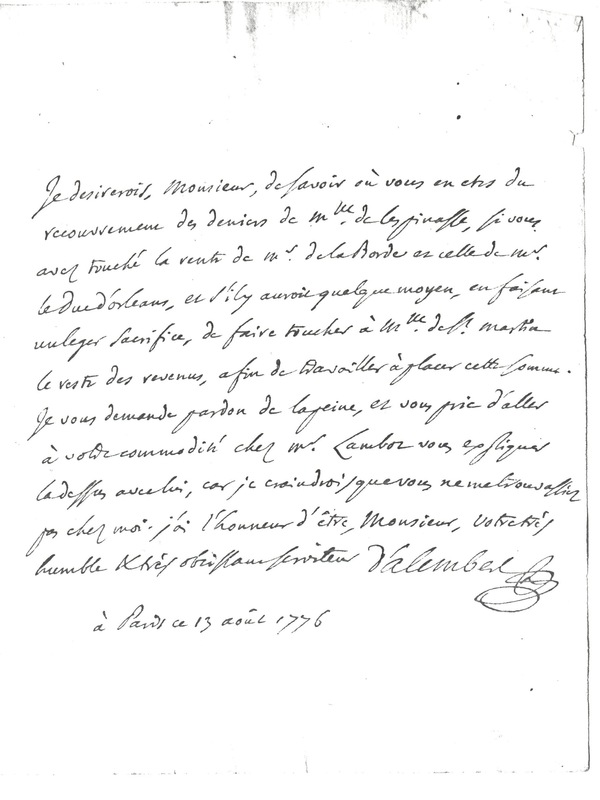 Je desirerois, Monsieur, de savoir où vous en etes du
recouvrement des deniers de Mlle. de lespinasse, si vous
avez touché la rente de mr. de la Borde et celle de mr.
le Duc d'orleans, et s'il y auroit quelque moyen, en faisant
un leger sacrifice, de faire toucher à Mlle. de St. martin
le reste des revenus, afin de travailler à placer cette somme.
Je vous demande pardon de la peine, et vous prie d'aller
à votre commodité chez mr. Lambot vous expliquer
la dessus avec lui, car je craindrois que vous ne me trouvassiez
pas chez moi. j'ai l'honneur d'être, Monsieur, votre très
humble & très obeissant serviteur D'alembert
à Paris ce 13 août 1776